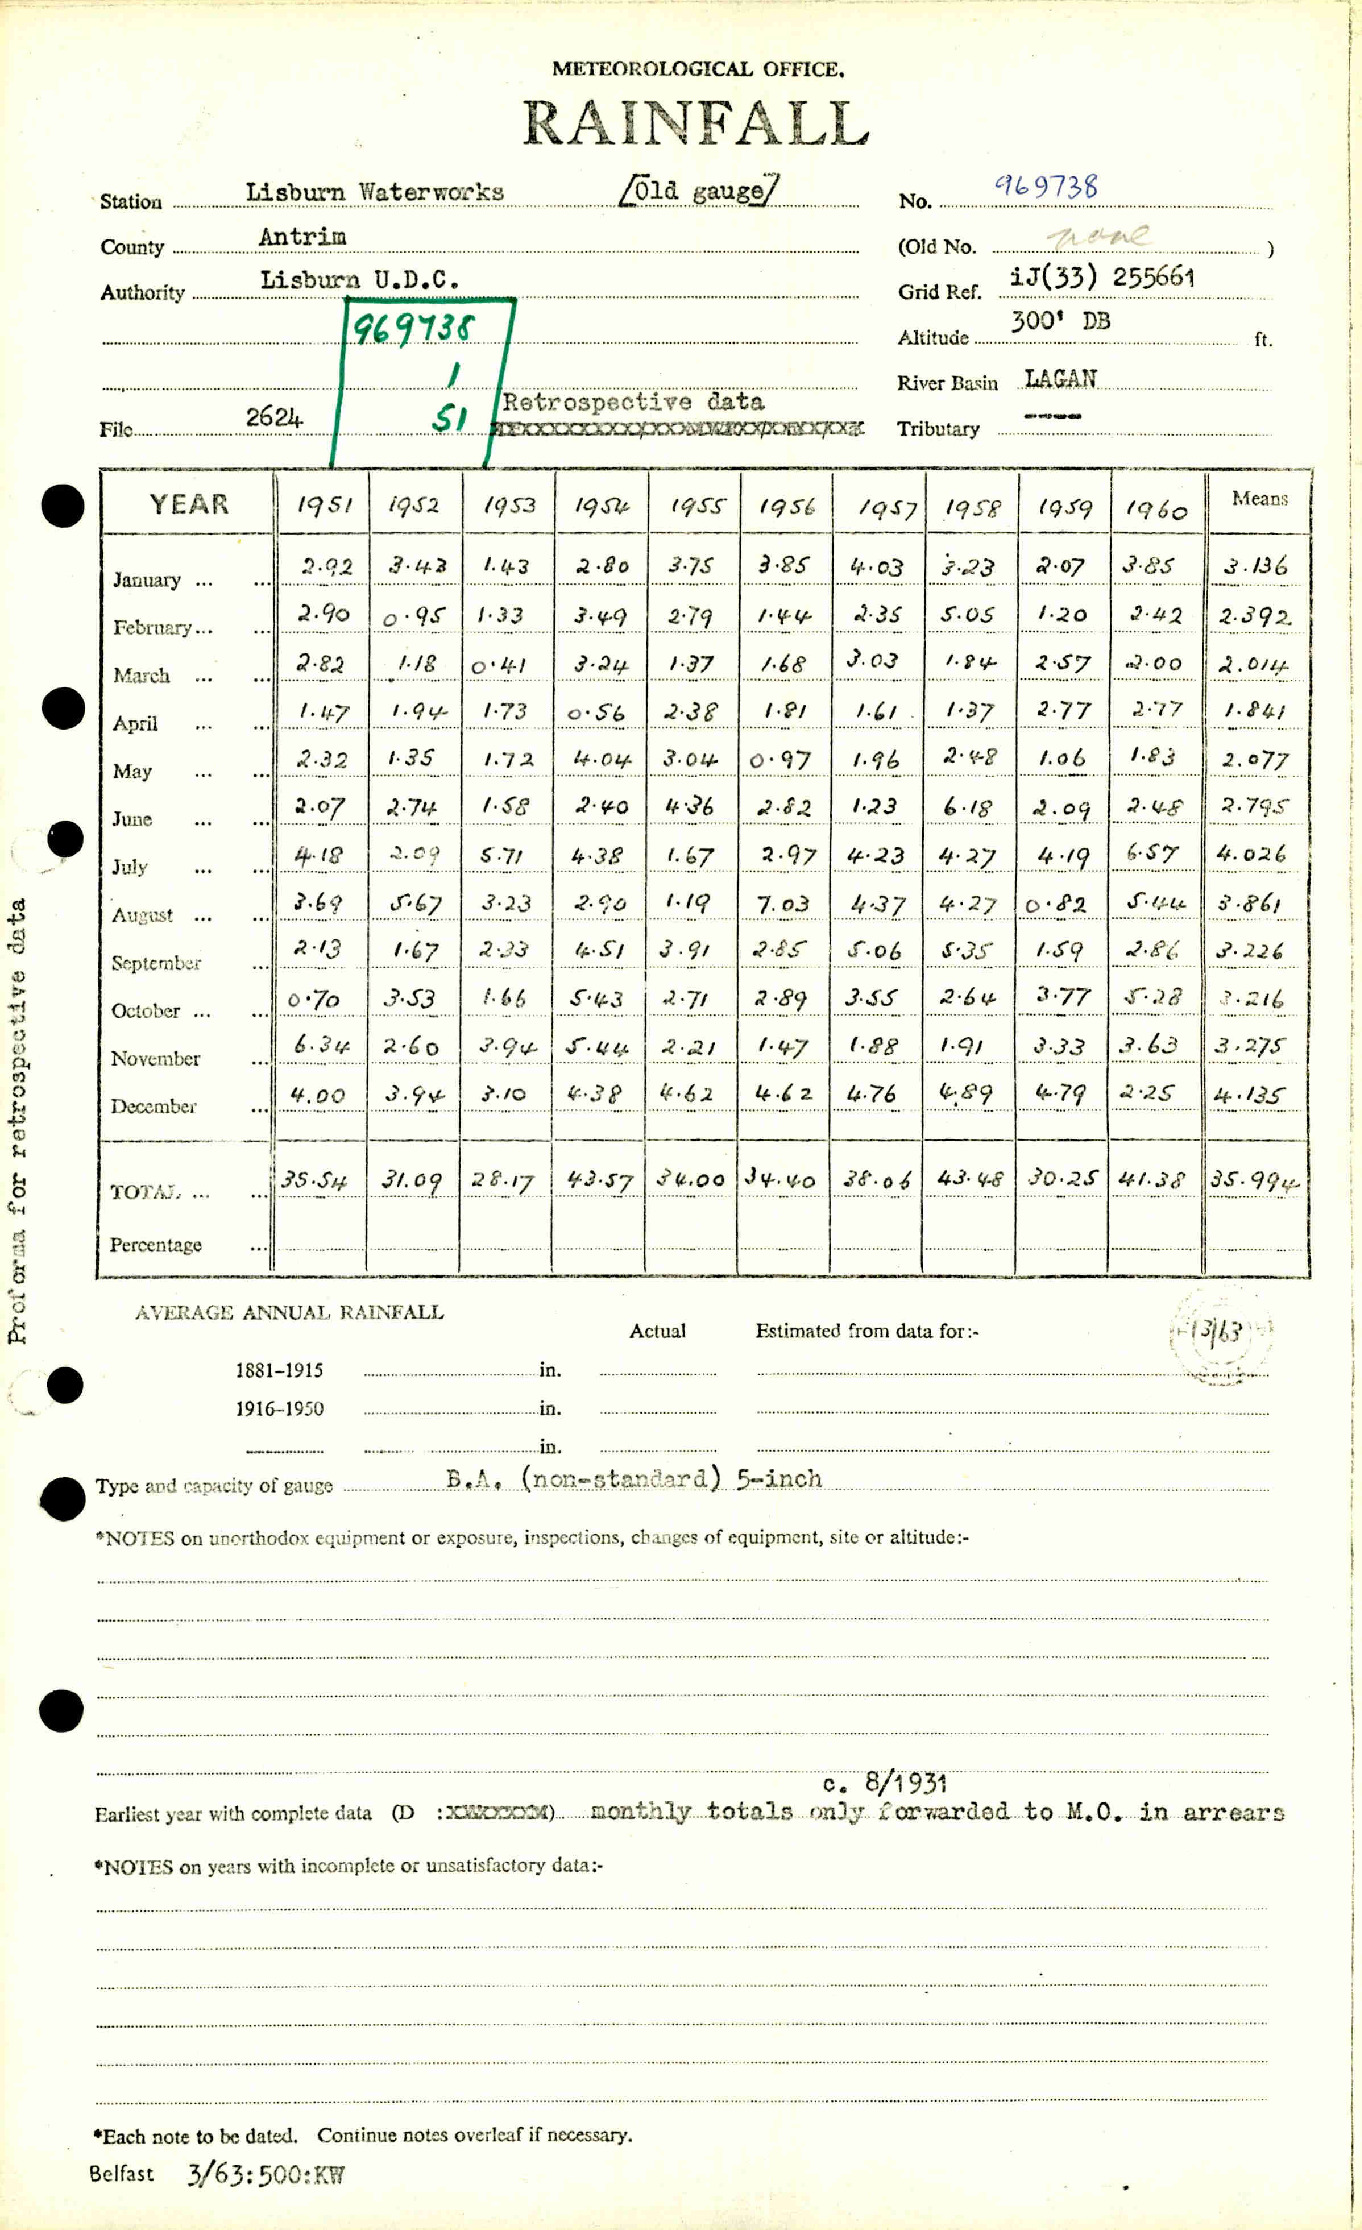 METEOROLOGICAL OFFICE.
RAINFALL
Station Lisburn Waterworks [Old gauge] No. 969738
County Antrim (Old No. none )
Authority Lisburn U.D.C. Grid Ref. iJ(33) 255661
969738
Altitude 300' DB ft.
1
River Basin LAGAN
Retrospective data
File 2624 51 Tributary ----
YEAR 1951 1952 1953 1954 1955 1956 1957 1958 1959 1960 Means
January ... ... 2.92 3.43 1.43 2.80 3.75 3.85 4.03 3.23 2.07 3.85 3.136
February... ... 2.90 0.95 1.33 3.49 2.79 1.44 2.35 5.05 1.20 2.42 2.392
March ... ... 2.82 1.18 0.41 3.24 1.37 1.68 3.03 1.84 2.57 2.00 2.014
April ... ... 1.47 1.94 1.73 0.56 2.38 1.81 1.61 1.37 2.77 2.77 1.841
May ... ... 2.32 1.35 1.72 4.04 3.04 0.97 1.96 2.48 1.06 1.83 2.077
June ... ... 2.07 2.74 1.58 2.40 4.36 2.82 1.23 6.18 2.09 2.48 2.795
July ... ... 4.18 2.09 5.71 4.38 1.67 2.97 4.23 4.27 4.19 6.57 4.026
August ... ... 3.69 5.67 3.23 2.90 1.19 7.03 4.37 4.27 0.82 5.44 3.861
September ... 2.13 1.67 2.33 4.51 3.91 2.85 5.06 5.35 1.59 2.86 3.226
October ... ... 0.70 3.53 1.66 5.43 2.71 2.89 3.55 2.64 3.77 5.28 3.216
November ... 6.34 2.60 3.94 5.44 2.21 1.47 1.88 1.91 3.33 3.63 3.275
December ... 4.00 3.94 3.10 4.38 4.62 4.62 4.76 4.89 4.79 2.25 4.135
TOTAL ... ... 35.54 31.09 28.17 43.57 34.00 34.40 38.06 43.48 30.25 41.38 35.994
Percentage ...
Proforma for retrospective data
AVERAGE ANNUAL RAINFALL
Actual Estimated from data for:- 13/63
1881-1915 in.
1916-1950 in.
in.
Type and capacity of gauge B.A. (non-standard) 5-inch
*NOTES on unorthodox equipment or exposure, inspections, changes of equipment, site or altitude:-
c. 8/1931
Earliest year with complete data (D : ) monthly totals only forwarded to M.O. in arrears
*NOTES on years with incomplete or unsatisfactory data:-
*Each note to be dated. Continue notes overleaf if necessary.
Belfast 3/63:500:KW